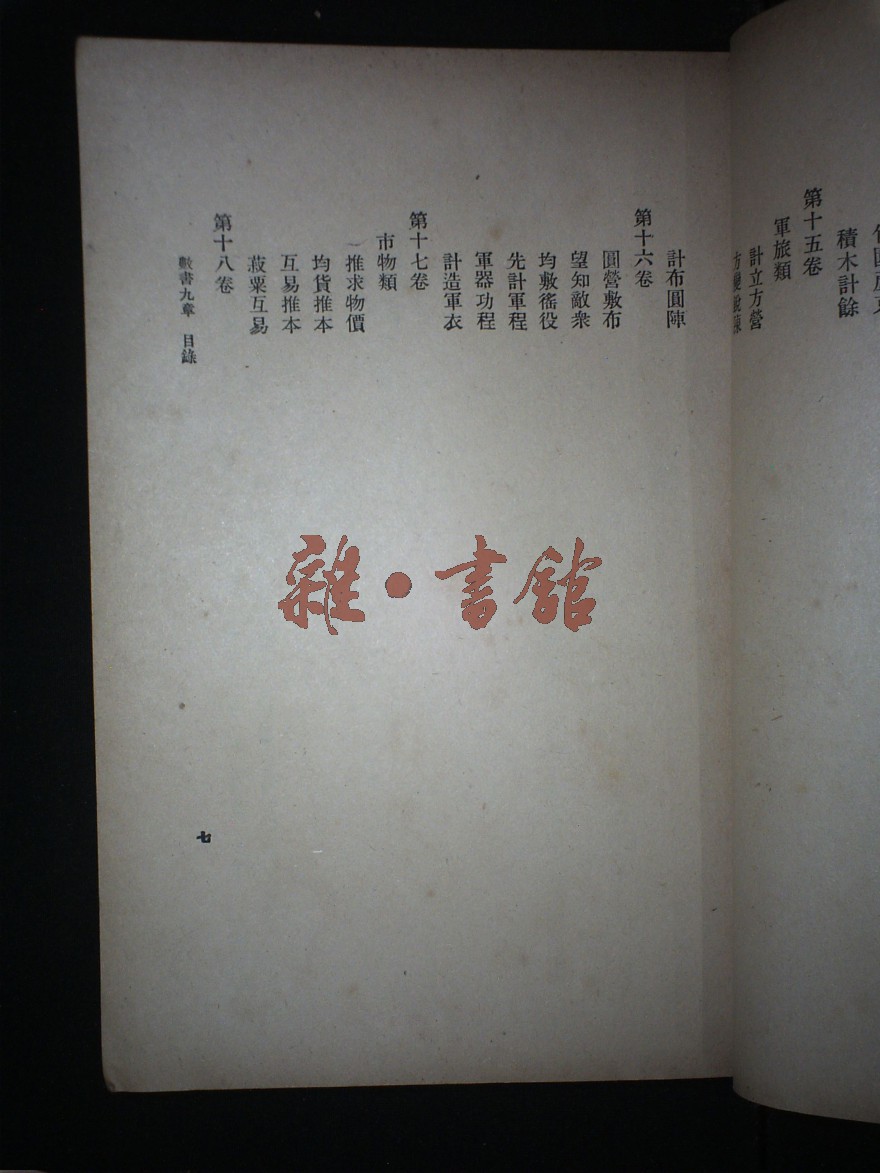 積木計餘
第十五卷
軍旅類
計立方營
方變銳陳
計布圓陣
第十六卷
圓營敷布
望知敵衆
均敷徭役
先計軍程
軍器功程
計造軍衣
第十七卷
市物類
推求物價
均貨推本
互易推本
菽粟互易
第十八卷
數書九章 目錄
七
雜·書館